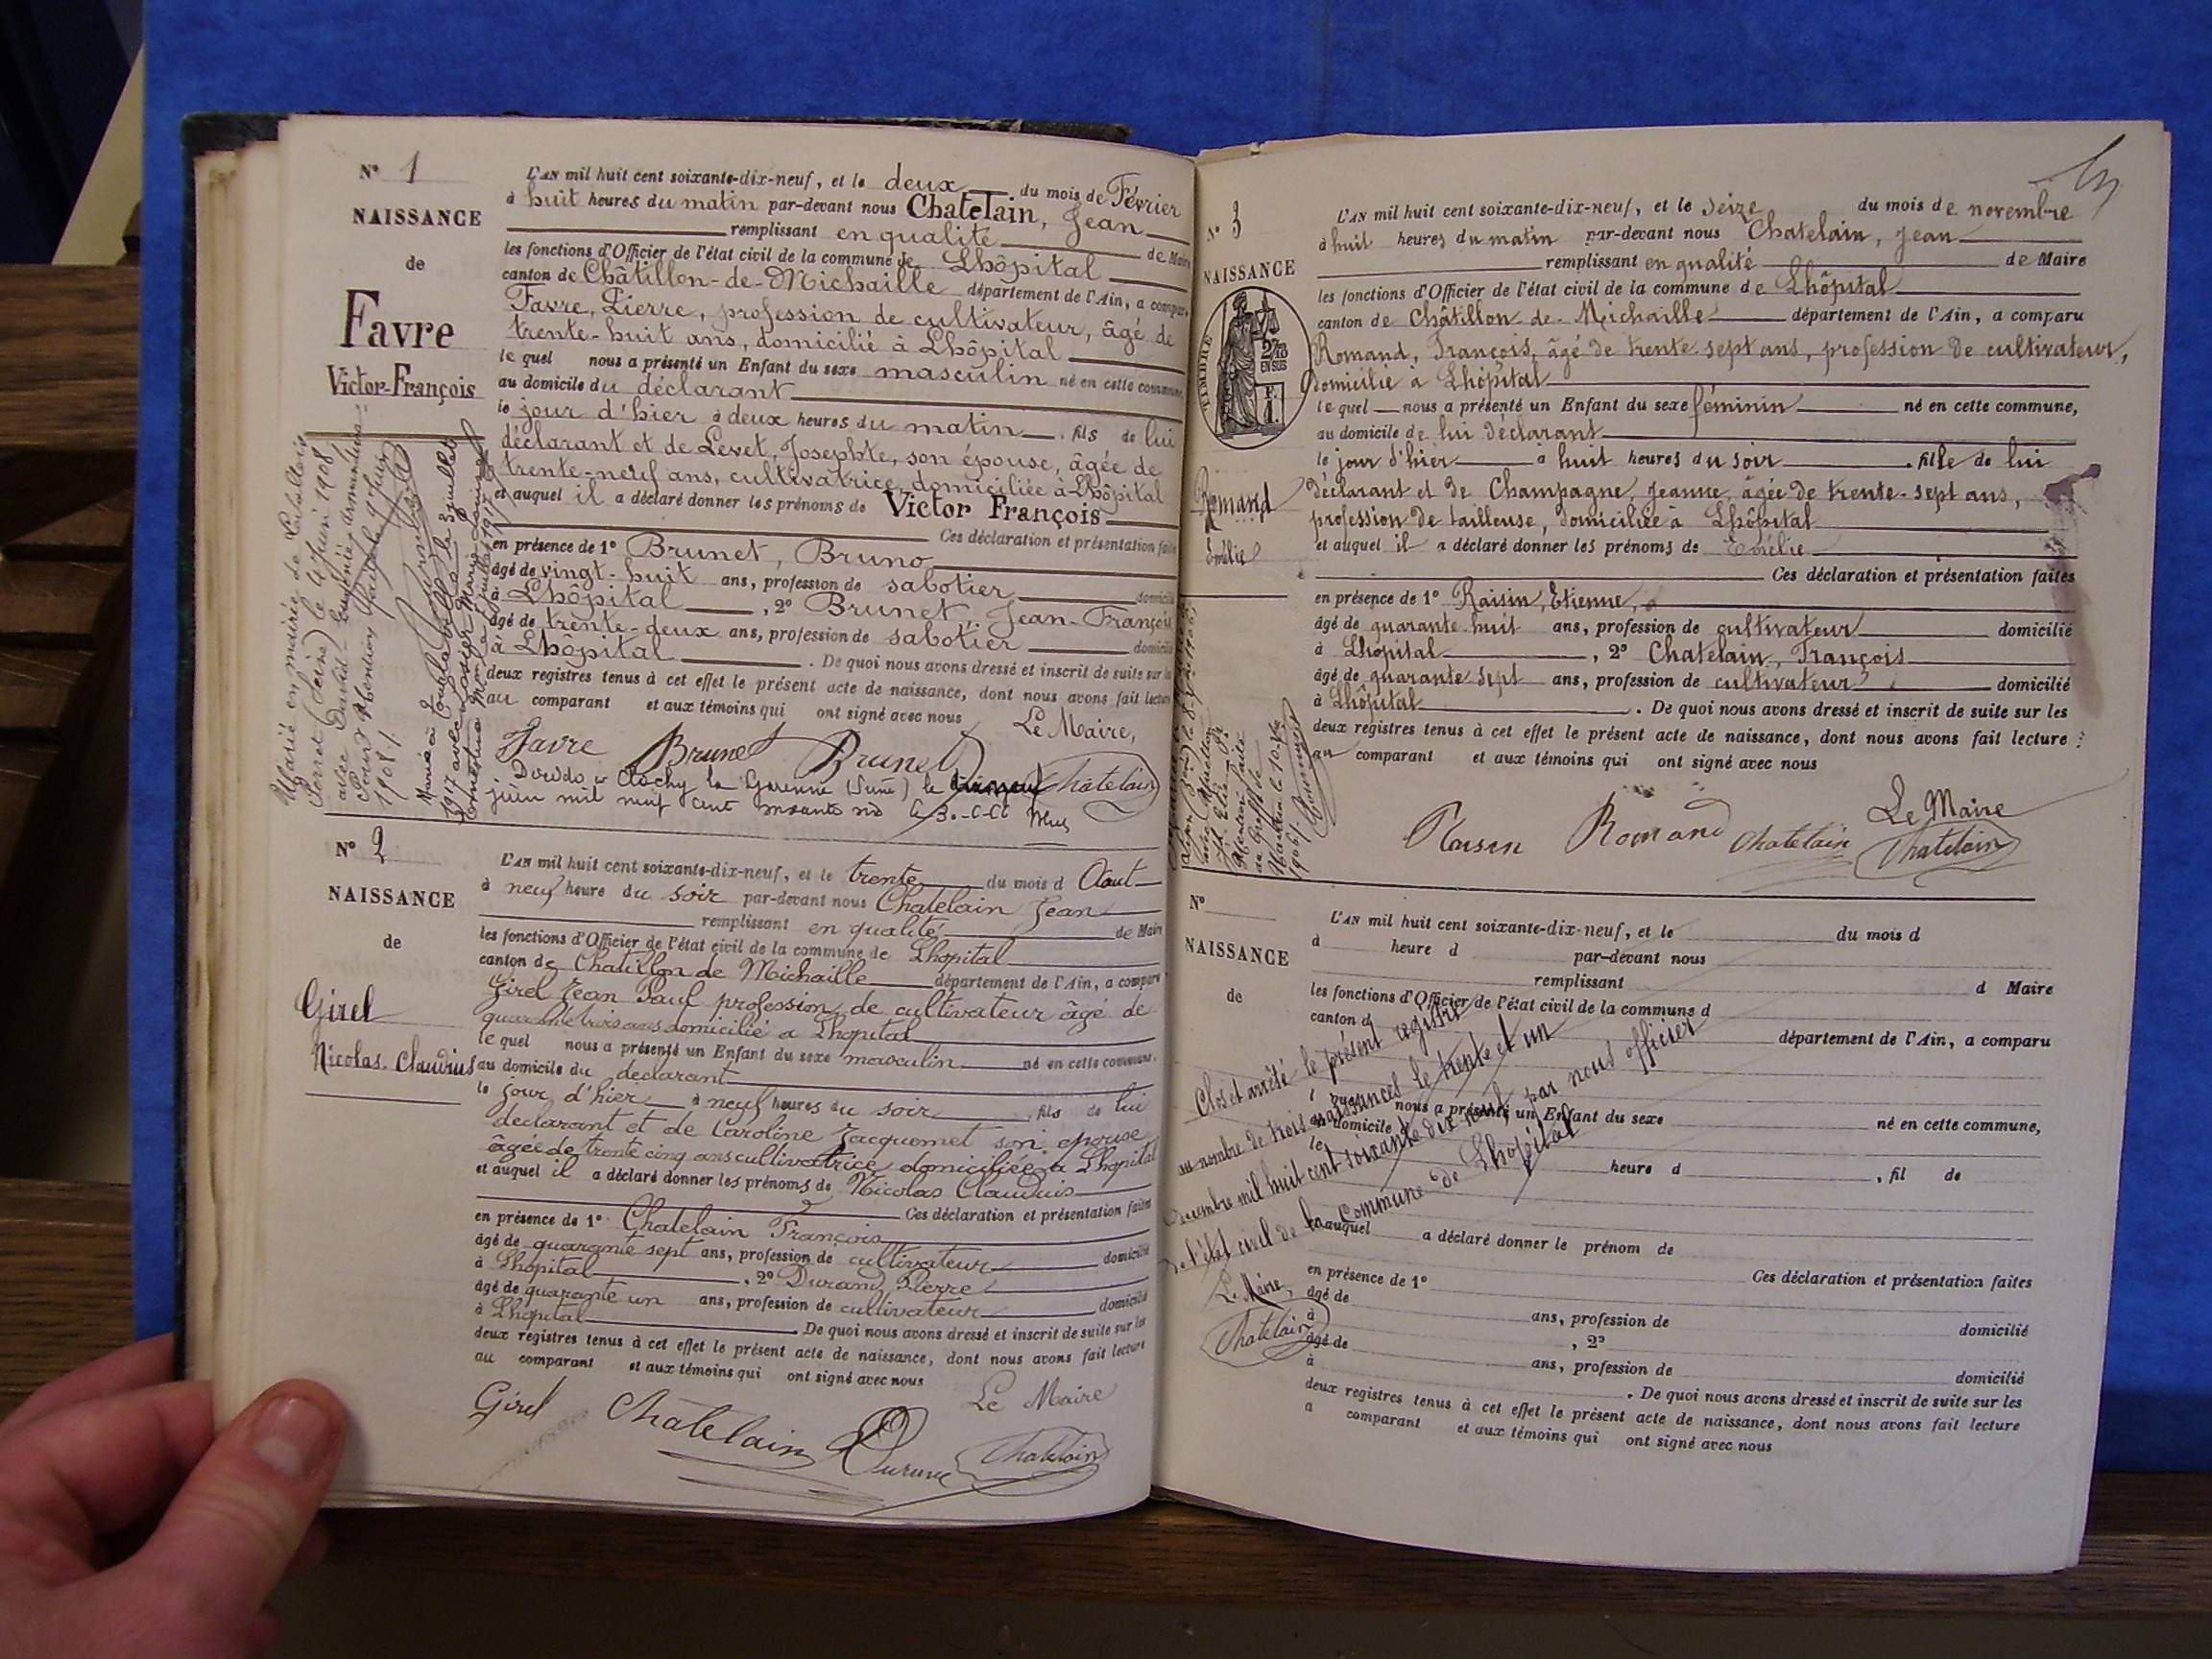 N° 1
NAISSANCE
de
Favre
Victor-François
L'AN mil huit cent soixante-dix-neuf, et le deux du mois de Février
à huit heures du matin par-devant nous Chatelain, Jean
remplissant en qualité de Maire
les fonctions d'Officier de l'état civil de la commune de Lhôpital
canton de Châtillon-de-Michaille département de l'Ain, a comparu
Favre, Pierre, profession de cultivateur, âgé de
trente-huit ans, domicilié à Lhôpital
le quel nous a présenté un Enfant du sexe masculin né en cette commune,
au domicile du déclarant
le jour d'hier à deux heures du matin, fils de lui
déclarant et de Levet, Josephte, son épouse, âgée de
trente-neuf ans, cultivatrice, domiciliée à Lhôpital
et auquel il a déclaré donner les prénoms de Victor François
Ces déclaration et présentation faites
en présence de 1° Brunet, Bruno
âgé de vingt-huit ans, profession de sabotier domicilié
à Lhôpital, 2° Brunet, Jean-François
âgé de trente-deux ans, profession de sabotier domicilié
à Lhôpital. De quoi nous avons dressé et inscrit de suite sur les
deux registres tenus à cet effet le présent acte de naissance, dont nous avons fait lecture
au comparant et aux témoins qui ont signé avec nous
Le Maire,
Favre Brunet Brunet Chatelain
Décédé à Clichy la Garenne (Seine) le
juin mil neuf cent soixante six
Marié en mairie de
Perret (Seine) le 4 Juin 1908
avec David Eugénie
Pour Mention
1908.
Marié à le 5 juillet
1917 avec Marie-Louise
N° 2
NAISSANCE
de
Girel
Nicolas Claudius
L'AN mil huit cent soixante-dix-neuf, et le trente du mois d Aout
à neuf heure du soir par-devant nous Chatelain Jean
remplissant en qualité de Maire
les fonctions d'Officier de l'état civil de la commune de Lhopital
canton de Chatillon de Michaille département de l'Ain, a comparu
Girel Jean Paul profession de cultivateur âgé de
quarante trois ans domicilié a Lhopital
le quel nous a présenté un Enfant du sexe masculin né en cette commune,
au domicile du declarant
le jour d'hier à neuf heures du soir, fils de lui
declarant et de Caroline Jacquemet son epouse
âgée de trente cinq ans cultivatrice domiciliée a Lhopital
et auquel il a déclaré donner les prénoms de Nicolas Claudius
Ces déclaration et présentation faites
en présence de 1° Chatelain François
âgé de quarante sept ans, profession de cultivateur domicilié
à Lhopital, 2° Durand Pierre
âgé de quarante un ans, profession de cultivateur domicilié
à Lhopital. De quoi nous avons dressé et inscrit de suite sur les
deux registres tenus à cet effet le présent acte de naissance, dont nous avons fait lecture
au comparant et aux témoins qui ont signé avec nous
Le Maire
Girel Chatelain Durand Chatelain
N° 3
NAISSANCE
TIMBRE
2/10
EN SUS
Romand
Emélie
L'AN mil huit cent soixante-dix-neuf, et le seize du mois de novembre
à huit heures du matin par-devant nous Chatelain, Jean
remplissant en qualité de Maire
les fonctions d'Officier de l'état civil de la commune de Lhôpital
canton de Châtillon de Michaille département de l'Ain, a comparu
Romand, François, âgé de trente sept ans, profession de cultivateur,
domicilié à Lhôpital
le quel nous a présenté un Enfant du sexe féminin né en cette commune,
au domicile de lui déclarant
le jour d'hier a huit heures du soir, fille de lui
déclarant et de Champagne, Jeanne, âgée de trente-sept ans,
profession de tailleuse, domiciliée à Lhôpital
et auquel il a déclaré donner les prénoms de Emélie
Ces déclaration et présentation faites
en présence de 1° Raisin, Etienne,
âgé de quarante huit ans, profession de cultivateur domicilié
à Lhopital, 2° Chatelain, François
âgé de quarante sept ans, profession de cultivateur domicilié
à Lhôpital. De quoi nous avons dressé et inscrit de suite sur les
deux registres tenus à cet effet le présent acte de naissance, dont nous avons fait lecture
au comparant et aux témoins qui ont signé avec nous
Le Maire
Raisin Romand Chatelain Chatelain
N°
NAISSANCE
de
L'AN mil huit cent soixante-dix-neuf, et le du mois d
à heure d par-devant nous
remplissant d Maire
les fonctions d'Officier de l'état civil de la commune d
canton d département de l'Ain, a comparu
nous a présenté un Enfant du sexe né en cette commune,
au domicile
le heure d, fil de
et auquel a déclaré donner le prénom de
Ces déclaration et présentation faites
en présence de 1°
âgé de ans, profession de domicilié
à, 2°
âgé de ans, profession de domicilié
à. De quoi nous avons dressé et inscrit de suite sur les
deux registres tenus à cet effet le présent acte de naissance, dont nous avons fait lecture
a comparant et aux témoins qui ont signé avec nous
Clos et arrêté le présent registre
au nombre de trois naissances le trente et un
Décembre mil huit cent soixante dix neuf, par nous officier
de l'état civil de la Commune de Lhôpital
Le Maire,
Chatelain